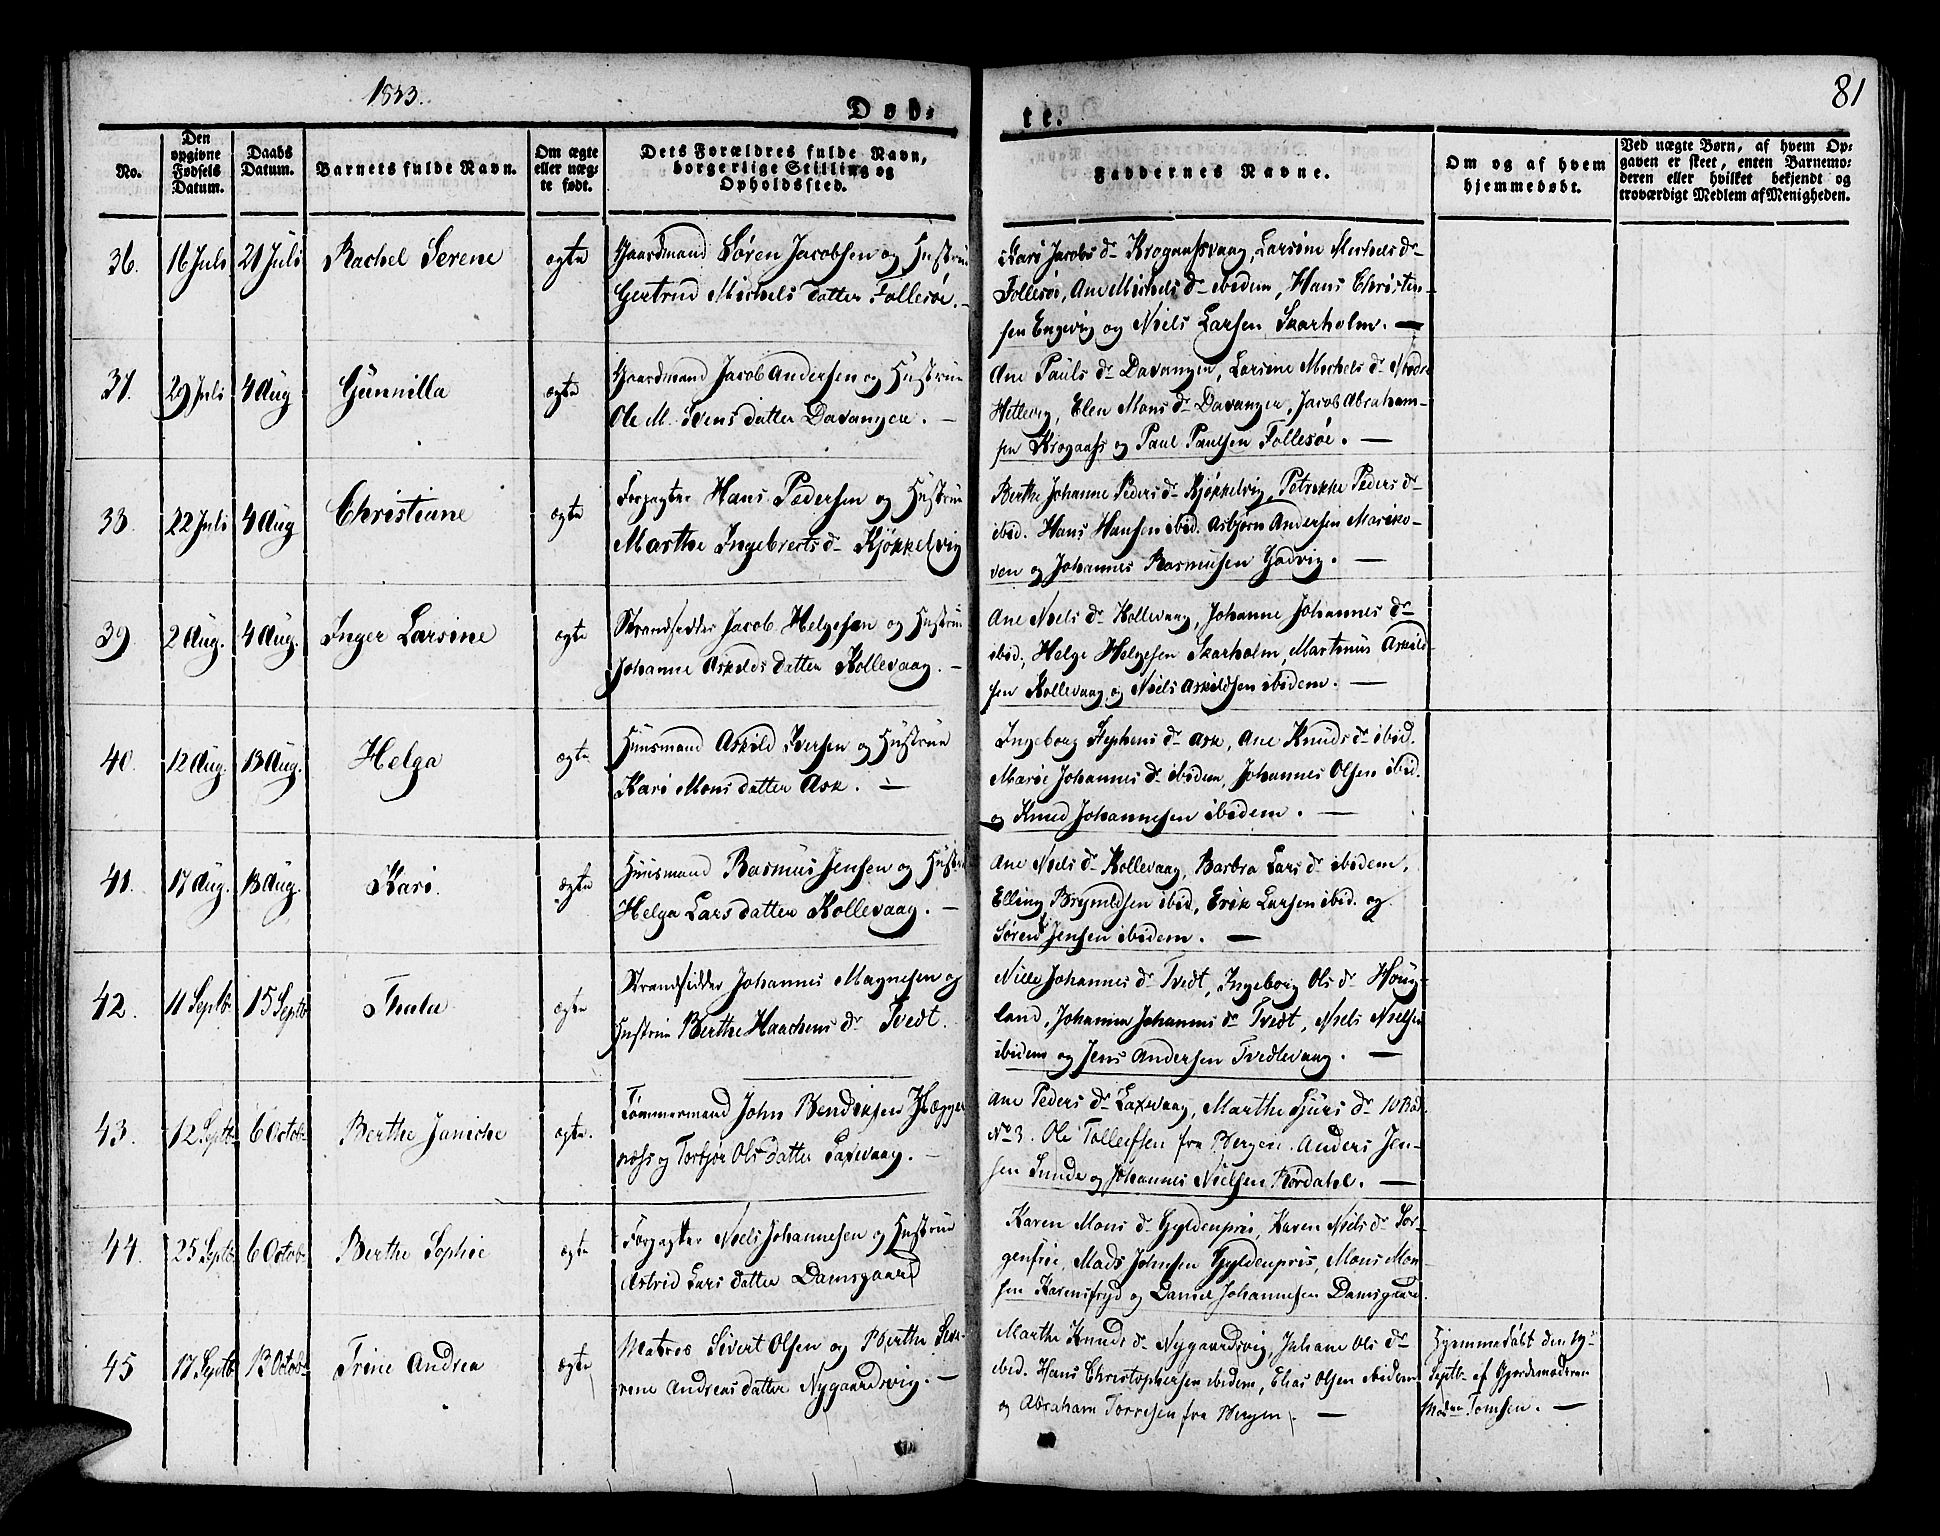 1833.
81
Døb-
te.
No.
Den
opgivne
Fødsels
Datum.
Daabs
Datum.
Barnets fulde Navn.
Om ægte
eller uæg-
te født.
Dets Forældres fulde Navn,
borgerlige Stilling og
Opholdssted.
Faddernes Navne.
Om og af hvem
hjemmedøbt.
Ved uægte Børn, af hvem Op-
gaven er skeet, enten Barnemo-
deren eller hvilket bekjendt og
troværdigt Medlem af Menigheden.
36.
16 Juli
21 Juli
Rachel Serene
ægte
Gaardmand Søren Jacobsen og Hustrue
Gertrud Michels datter Follesøe. —
Kari Jacobs dr Krogaasvaag, Larsine Michels dr
Follesøe, Ane Michels dr ibidem, Hans Christen-
sen Engevig og Niels Larsen Skarholm. —
37.
29 Juli
4 Aug
Gunnilla
ægte
Gaardmand Jacob Andersen og Hustrue
Ole M. Ivens datter Davanger. —
Ane Pauls dr Davanger, Larsine Michels dr Nedre
Hettevig, Elen Mons dr Davanger, Jacob Abraham-
sen Krogaas og Paul Paulsen Follesøe. —
38.
22 Juli
4 Aug
Christiane
ægte
Forpagter Hans Pedersen og Hustrue
Marthe Ingebrets dr Kjøkkelvig
Berthe Johanne Peders dr Kjøkkelvig, Petrikke Peders dr
ibid. Hans Hansen ibid. Asbjørn Andersen Mariko-
ven og Johannes Rasmusen Godvig. —
39
2 Aug.
4 Aug.
Inger Larsine
ægte
Strandsidder Jacob Helgesen og Hustrue
Johanne Askilds datter Kollevaag. —
Ane Niels dr Kollevaag, Johanne Johannes dr
ibid, Helge Helgesen Skarholm, Martinus Askild-
sen Kollevaag og Niels Askildsen ibidem. —
40.
12 Aug.
13 Aug.
Helga
ægte
Huusmand Askild Iversen og Hustrue
Kari Mons datter Ask. —
Ingeborg Stephens dr Ask, Ane Knuds dr ibid.
Marie Johannes dr ibidem, Johannes Olsen ibid.
og Knud Johannesen ibidem. —
41.
17 Aug.
18 Aug.
Kari.
ægte
Huusmand Rasmus Jensen og Hustr
Helga Lars datter Kollevaag. —
Ane Niels dr Kollevaag, Barbra Lars dr ibidem,
Elling Brynildsen ibid, Erik Larsen ibid. og
Søren Jensen ibidem. —
42.
11 Septb
15 Septb
Thala
ægte
Strandsidder Johannes Magnesen og
Hustrue Berthe Haachens dr Tvedt.
Nille Johannes dr Tvedt, Ingeborg Ols dr Houg-
land, Johanna Johannes dr Tvedt, Niels Nielsen
ibidem og Jens Andersen Tvedtevaag. —
43.
12 Septb
6 Octob
Berthe Janiche
ægte.
Tømmermand John Bendiksen Hægger-
næss og Torbjør Ols datter Laxevaag. —
Ane Peders dr Laxevaag, Marthe Siurs dr 10 Rod.
No 3. Ole Tollefsen fra Bergen. Anders Jen-
sen Sunde og Johannes Nielsen Børdahl. —
44.
25 Septb
6 Octob
Berthe Sophie
ægte
Forpagter Niels Johannesen og Hustrue
Astrid Lars datter Damsgaard
Karen Mons dr Gyldenpris, Karen Niels dr Sor-
genfrie, Mads Johnsen Gyldenpris, Mons Mon-
sen Karensfryd og Daniel Johannesen Damsgaard.
45
17 Septb
13 Octob
Trine Andrea
ægte
Matros Sivert Olsen og Berthe Seve-
rine Andreas datter Nygaardsvig. —
Marthe Knuds dr Nygaardsvig, Johane Ols dr
ibid. Hans Christophersen ibidem, Elias Olsen ibidem
og Abraham Torresen fra Bergen. —
Hjemmedøbt den 19de
Septb af Gjordemoderen
Mad. Tomsen. —